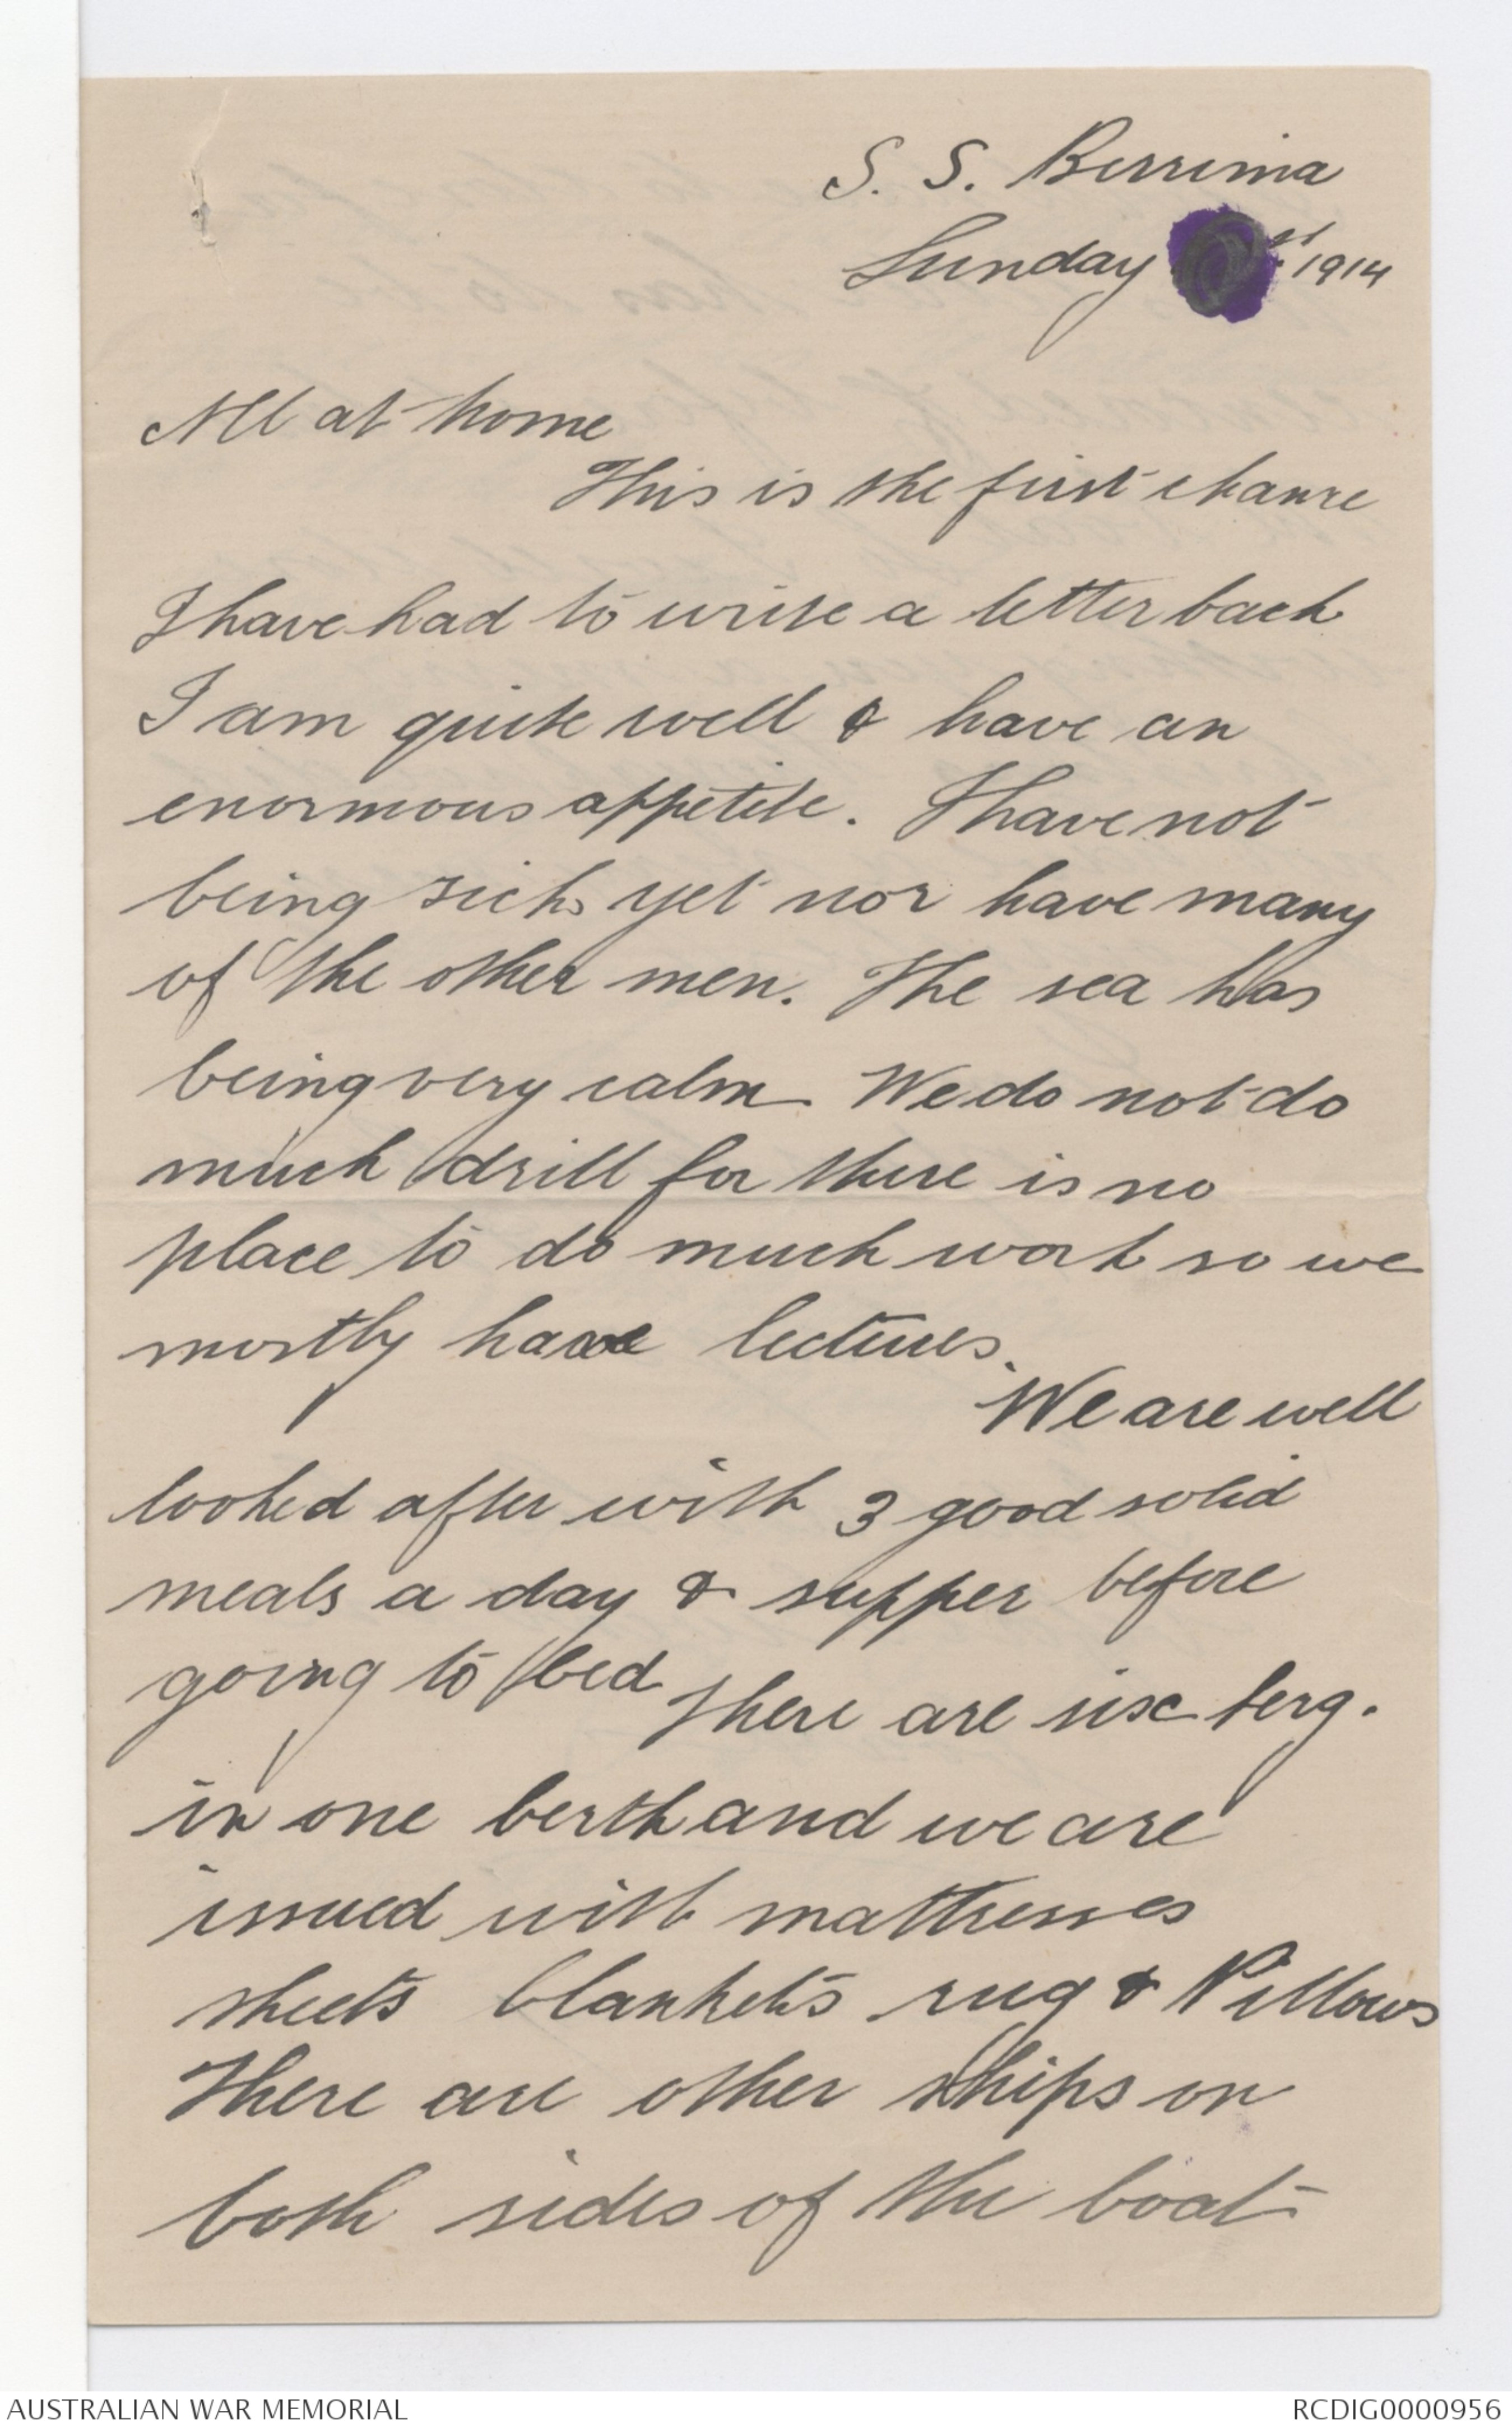 S. S. Berrima
Sunday st 1914
All at home
This is the first chance
I have had to write a letter back
I am quite well & have an
enormous appetite. I have not
being sick yet nor have many
of the other men. The sea has
being very calm We do not do
much drill for there is no
place to do much work so we
mostly have lectures.
We are well
looked after with 3 good solid
meals a day & supper before
going to bed There are six
in one berth and we are
issued with mattresses
sheets blankets rug & Pillows
There are other ships on
both sides of the boat
AUSTRALIAN WAR MEMORIAL
RCDIG0000956